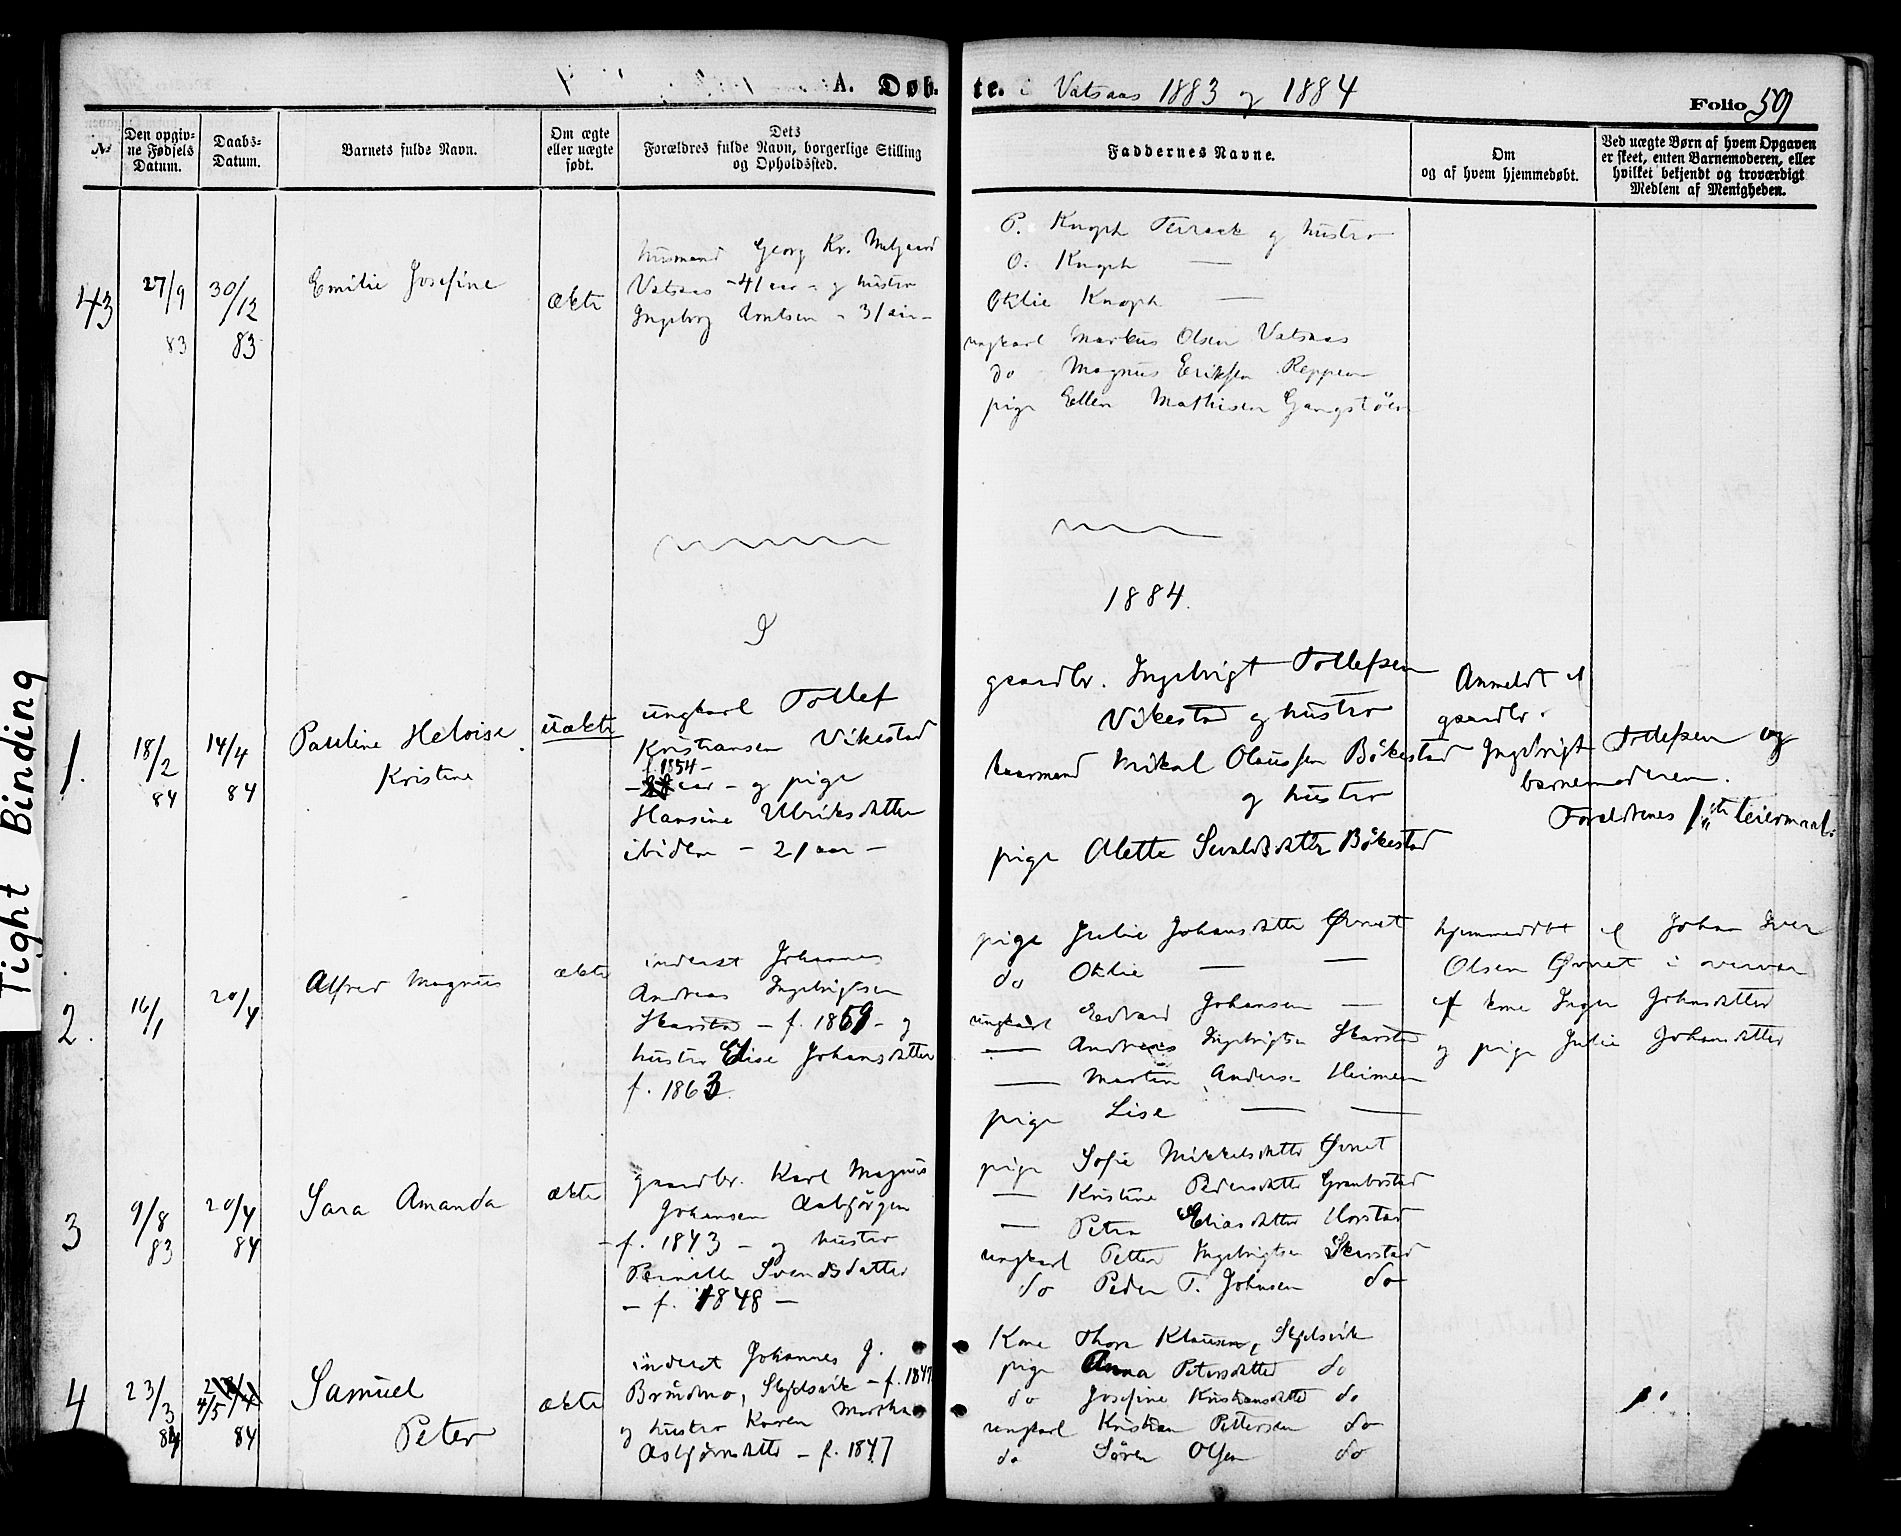 A. Døb-
te. i Vatsaas 1883 og 1884
Folio 59
№
Den opgiv-
ne Fødsels
Datum.
Daabs-
Datum.
Barnets fulde Navn.
Om ægte
eller uægte
født.
Dets
Forældres fulde Navn, borgerlige Stilling
og Opholdssted.
Faddernes Navne.
Om
og af hvem hjemmedøbt.
Ved uægte Børn af hvem Opgaven
er skeet, enten Barnemoderen, eller
hvilket bekjendt og troværdigt
Medlem af Menigheden.
43
27/9
83
30/12
83
Emilie Josefine
ækte
husmand Georg Kr.
Vatsaas - 41 aar - og hustro
Ingeborg Arntsen - 31 aar -
P. Knoph Terraak og hustro
O. Knoph —
Otilie Knoph —
ungkarl Markus Olsen Vatsaas
do Magnus Eriksen Reppen
pige Ellen Mathisen Gangstöen
1884.
1.
18/2
84
14/4
84
Pauline Heloise
Kristine
uækte
ungkarl Tollef
Kristiansen Vikestad
f. 1854 -
aar - og pige
Hansine Ulriksdatter
ibidem - 21 aar -
gaardbr. Ingebrigt Tollefsen
Vikestad og hustro
kaarmand Mikal Olaussen Bökestad
og hustro
pige Alette Sivaldsdatter Bökestad
Anmeldt af
gaardbr.
Ingebrigt Tollefsen og
barnemoderen.
Forældrenes 1ste leiermaal.
2.
16/1
20/4
Alfred Magnus
ækte
inderst Johannes
Andreas Ingebrigtsen
Skarstad - f. 1859 - og
hustro Elise Johansdatter
f. 1863
pige Julie Johansdatter Øvnet
do Otilie — —
ungkarl Edvard Johansen —
— Andreas Ingebrigtsen Skarstad
— Martin Andersen Heimen
pige Lise — —
hjemmedöbt af Johan Iver
Olsen Øvnet i overvær
af kone Inger Johnsdatter
og pige Julie Johansdatter
3
9/8
83
20/4
84
Sara Amanda
ækte
gaardbr. Karl Magnus
Johansen Aabjörgen
- f. 1843 - og hustro
Pernille Svendsdatter
- f. 1848 -
pige Sofie Mikkelsdatter Øvnet
— Kristine Pedersdatter Grønbostad
— Petra Eliasdatter Horstad
ungkarl Petter Ingebrigtsen Skarstad
do Peder T. Johnsen do
4
23/3
84
4/5
84
Samuel
Peter
ækte
inderst Johannes J.
Brundmo, Skjelsvik - f. 1847
og hustro Karen Martha
Asbjörnsdatter - f. 1847
Kone Thora Klausen, Skjelsvik
pige Anna Petersdatter do
do Josefine Kristiansdatter do
ungkarl Kristian Pettersen do
do Sören Olsen do
Tight Binding